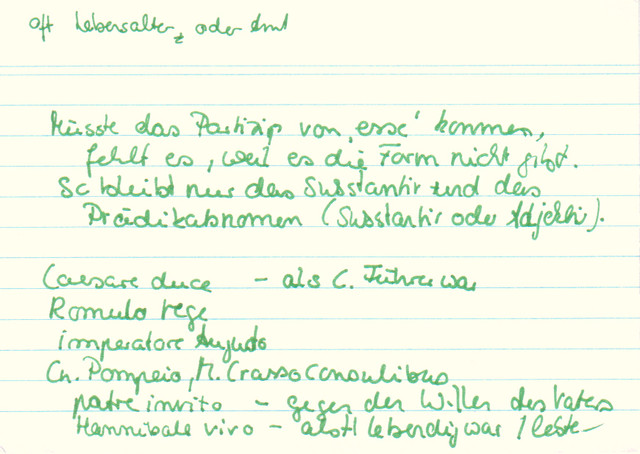 oft Lebensalter, oder Amt
Müsste das Partizip von 'esse' kommen,
fehlt es, weil es die Form nicht gibt.
So bleibt nur das Substantiv und das
Prädikatsnomen (Substantiv oder Adjektiv).
Caesare duce – als C. Führer war
Romulo rege
imperatore Augusto
Cn. Pompeio, M. Crasso consulibus
patre invito – gegen den Willen des Vaters
Hannibale vivo – als H lebendig war / lebte